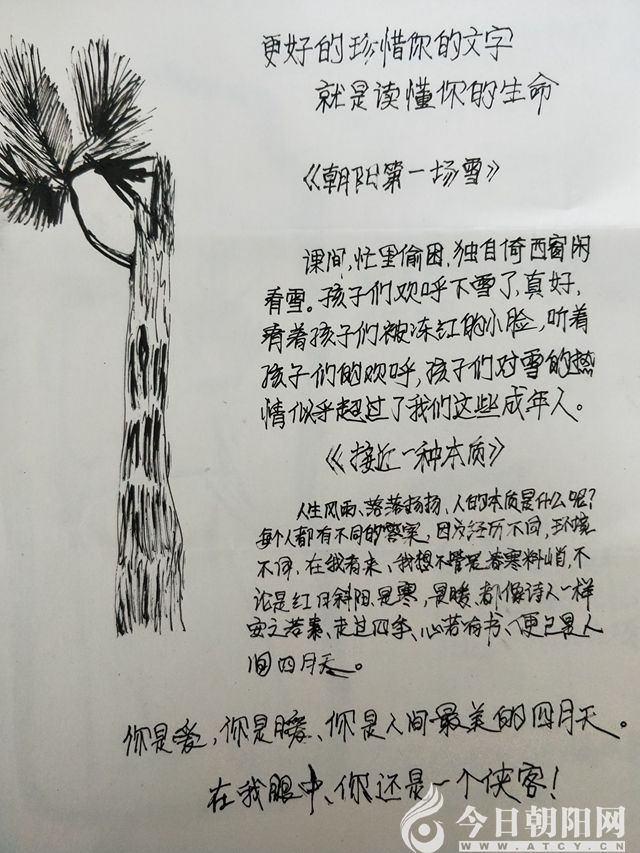 更好的珍惜你的文字
就是读懂你的生命
《朝阳第一场雪》
课间,忙里偷困,独自倚西窗闲
看雪。孩子们欢呼下雪了,真好,
看着孩子们被冻红的小脸,听着
孩子们的欢呼,孩子们对雪的热
情似乎超过了我们这些成年人。
《接近一种本质》
人生风雨、落落扬扬、人的本质是什么呢?
每个人都有不同的答案,因为经历不同,环境
不同,在我看来、我想不管是春寒料峭,不
论是红日斜阳、是寒,是暖、都像诗人一样
安之若素、走过四季、心若有书、便已是人
间四月天。
你是爱,你是暖、你是人间最美的四月天。
在我眼中、你还是一个侠客!
今日朝阳网
WWW.ATCY.CN